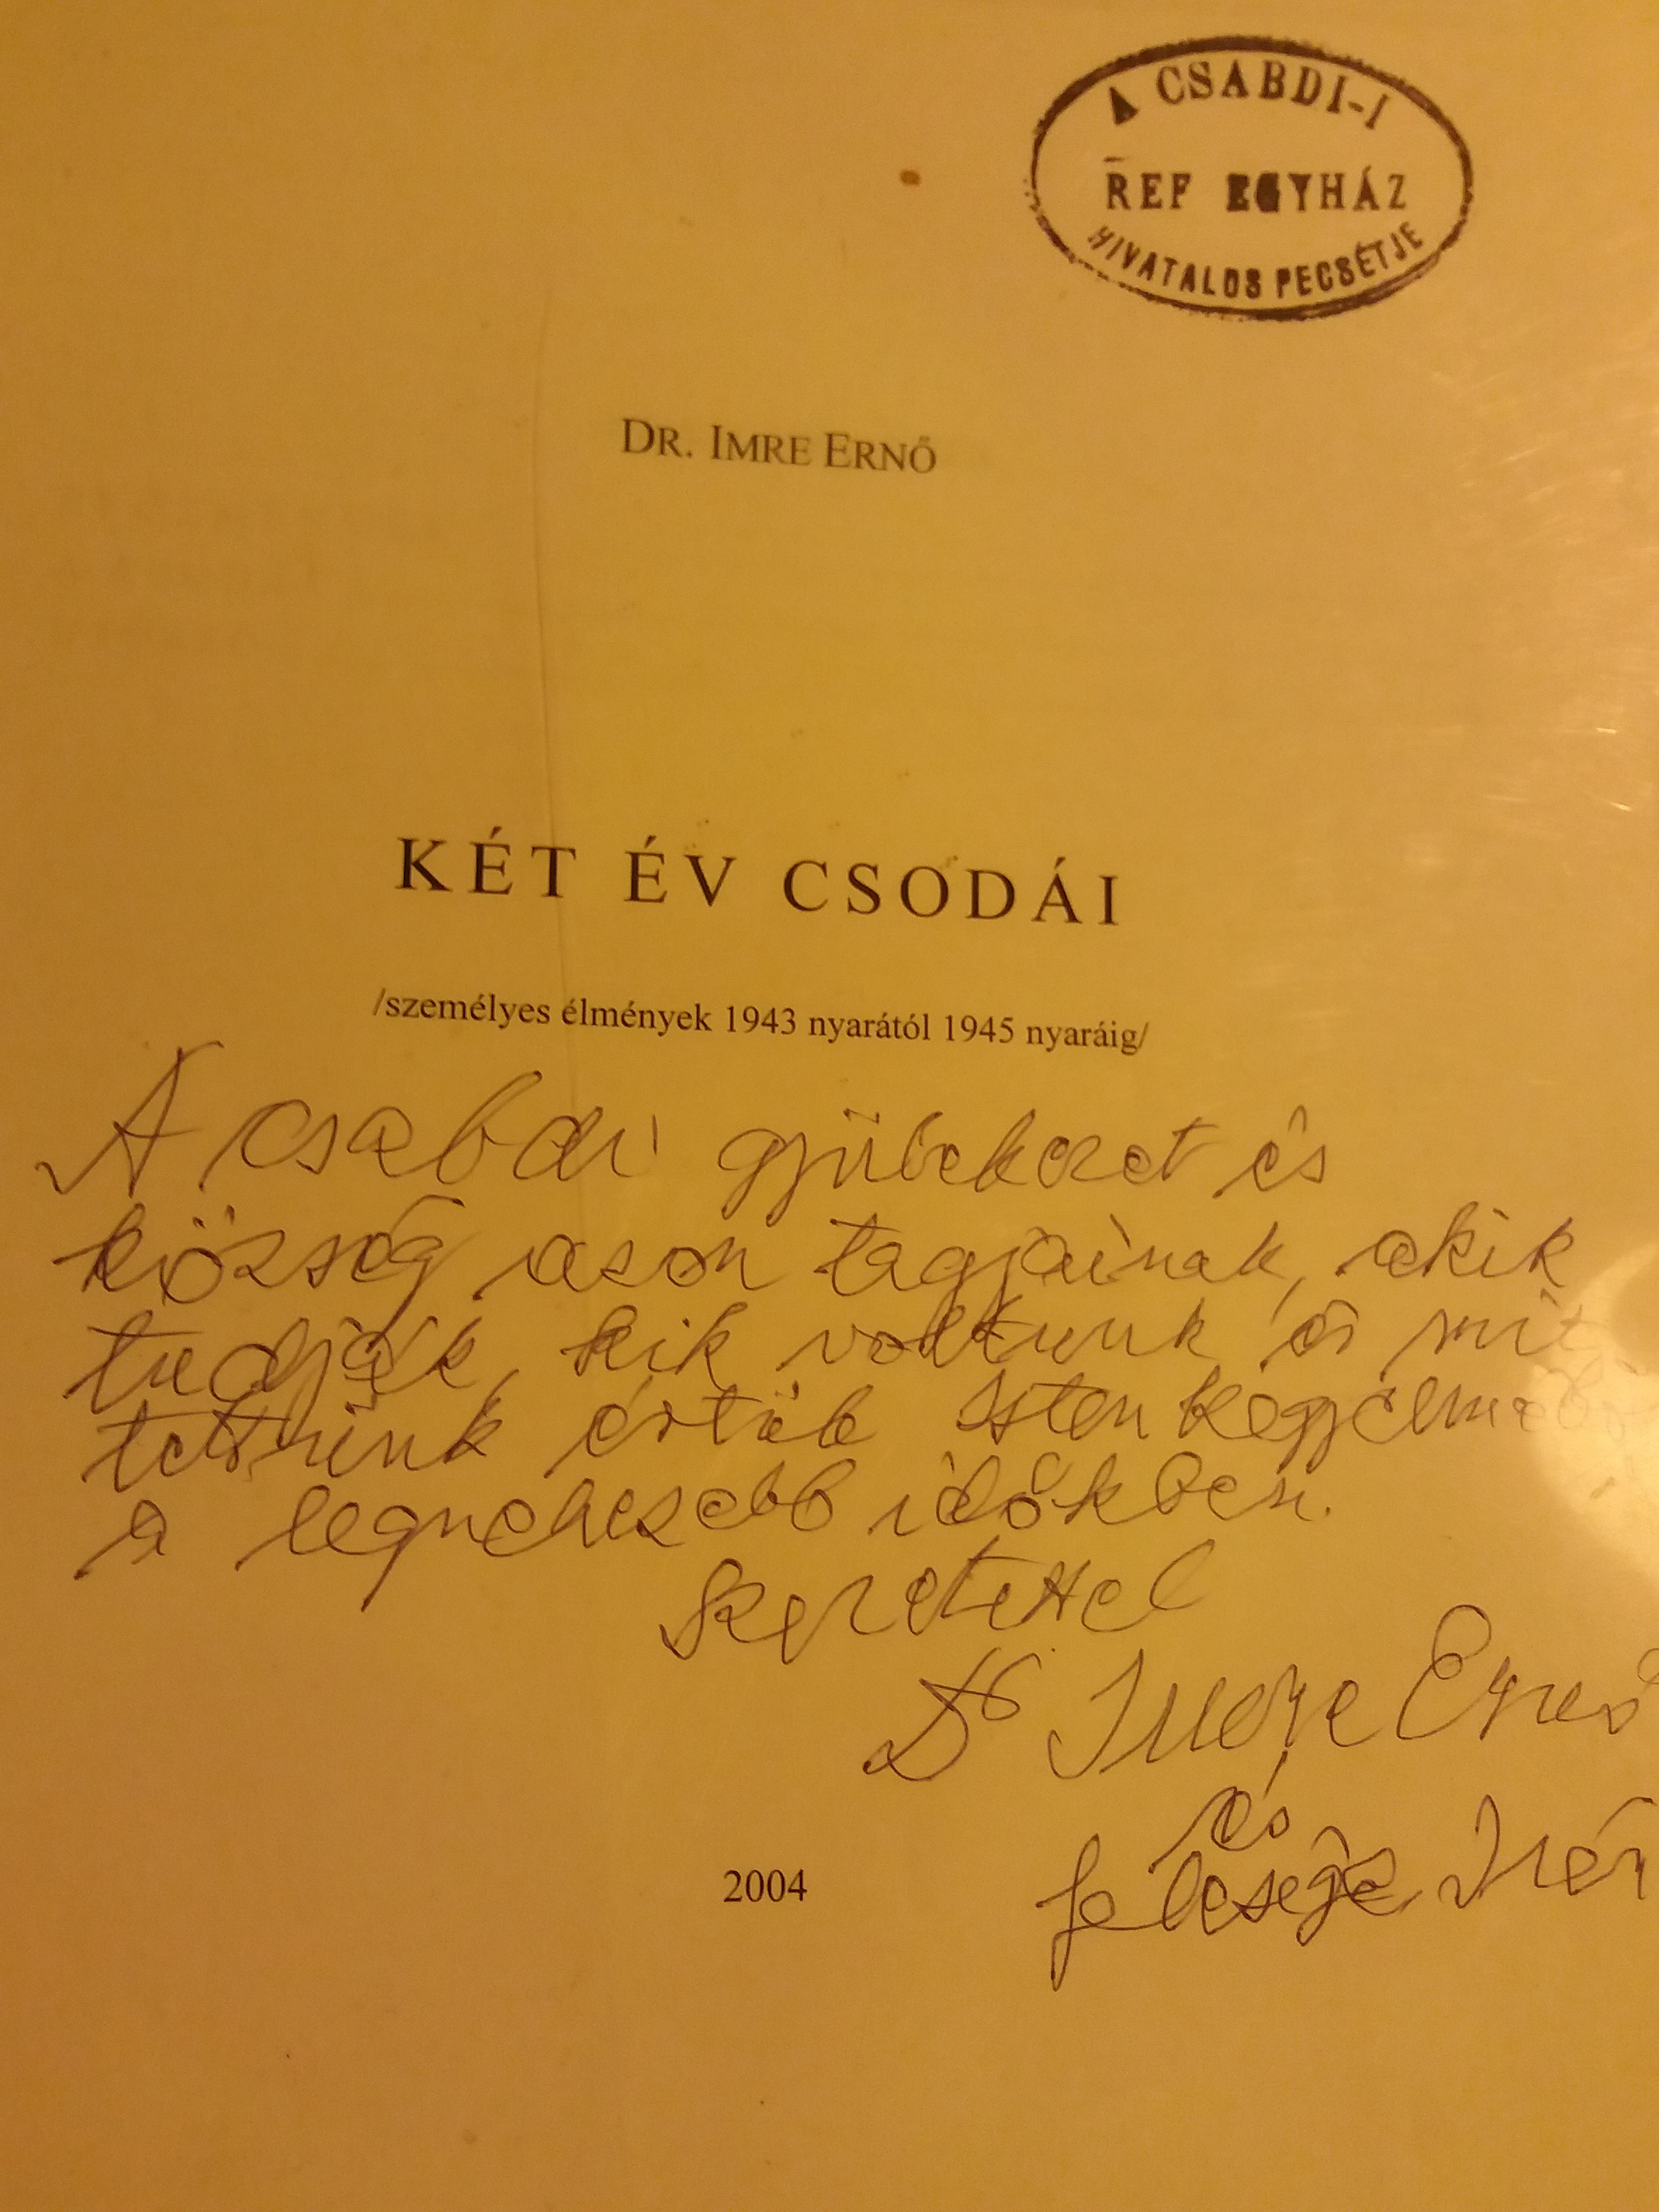 A CSABDI-I
REF EGYHÁZ
HIVATALOS PECSÉTJE
DR. IMRE ERNŐ
KÉT ÉV CSODÁI
/személyes élmények 1943 nyarától 1945 nyaráig/
A csabdi gyülekezet és
község azon tagjainak, akik
tudják, kik voltunk és mit
tettünk értük Isten kegyelméből
a legnehezebb időkben.
Szeretettel
Dr Imre Ernő
és
felesége Irén
2004